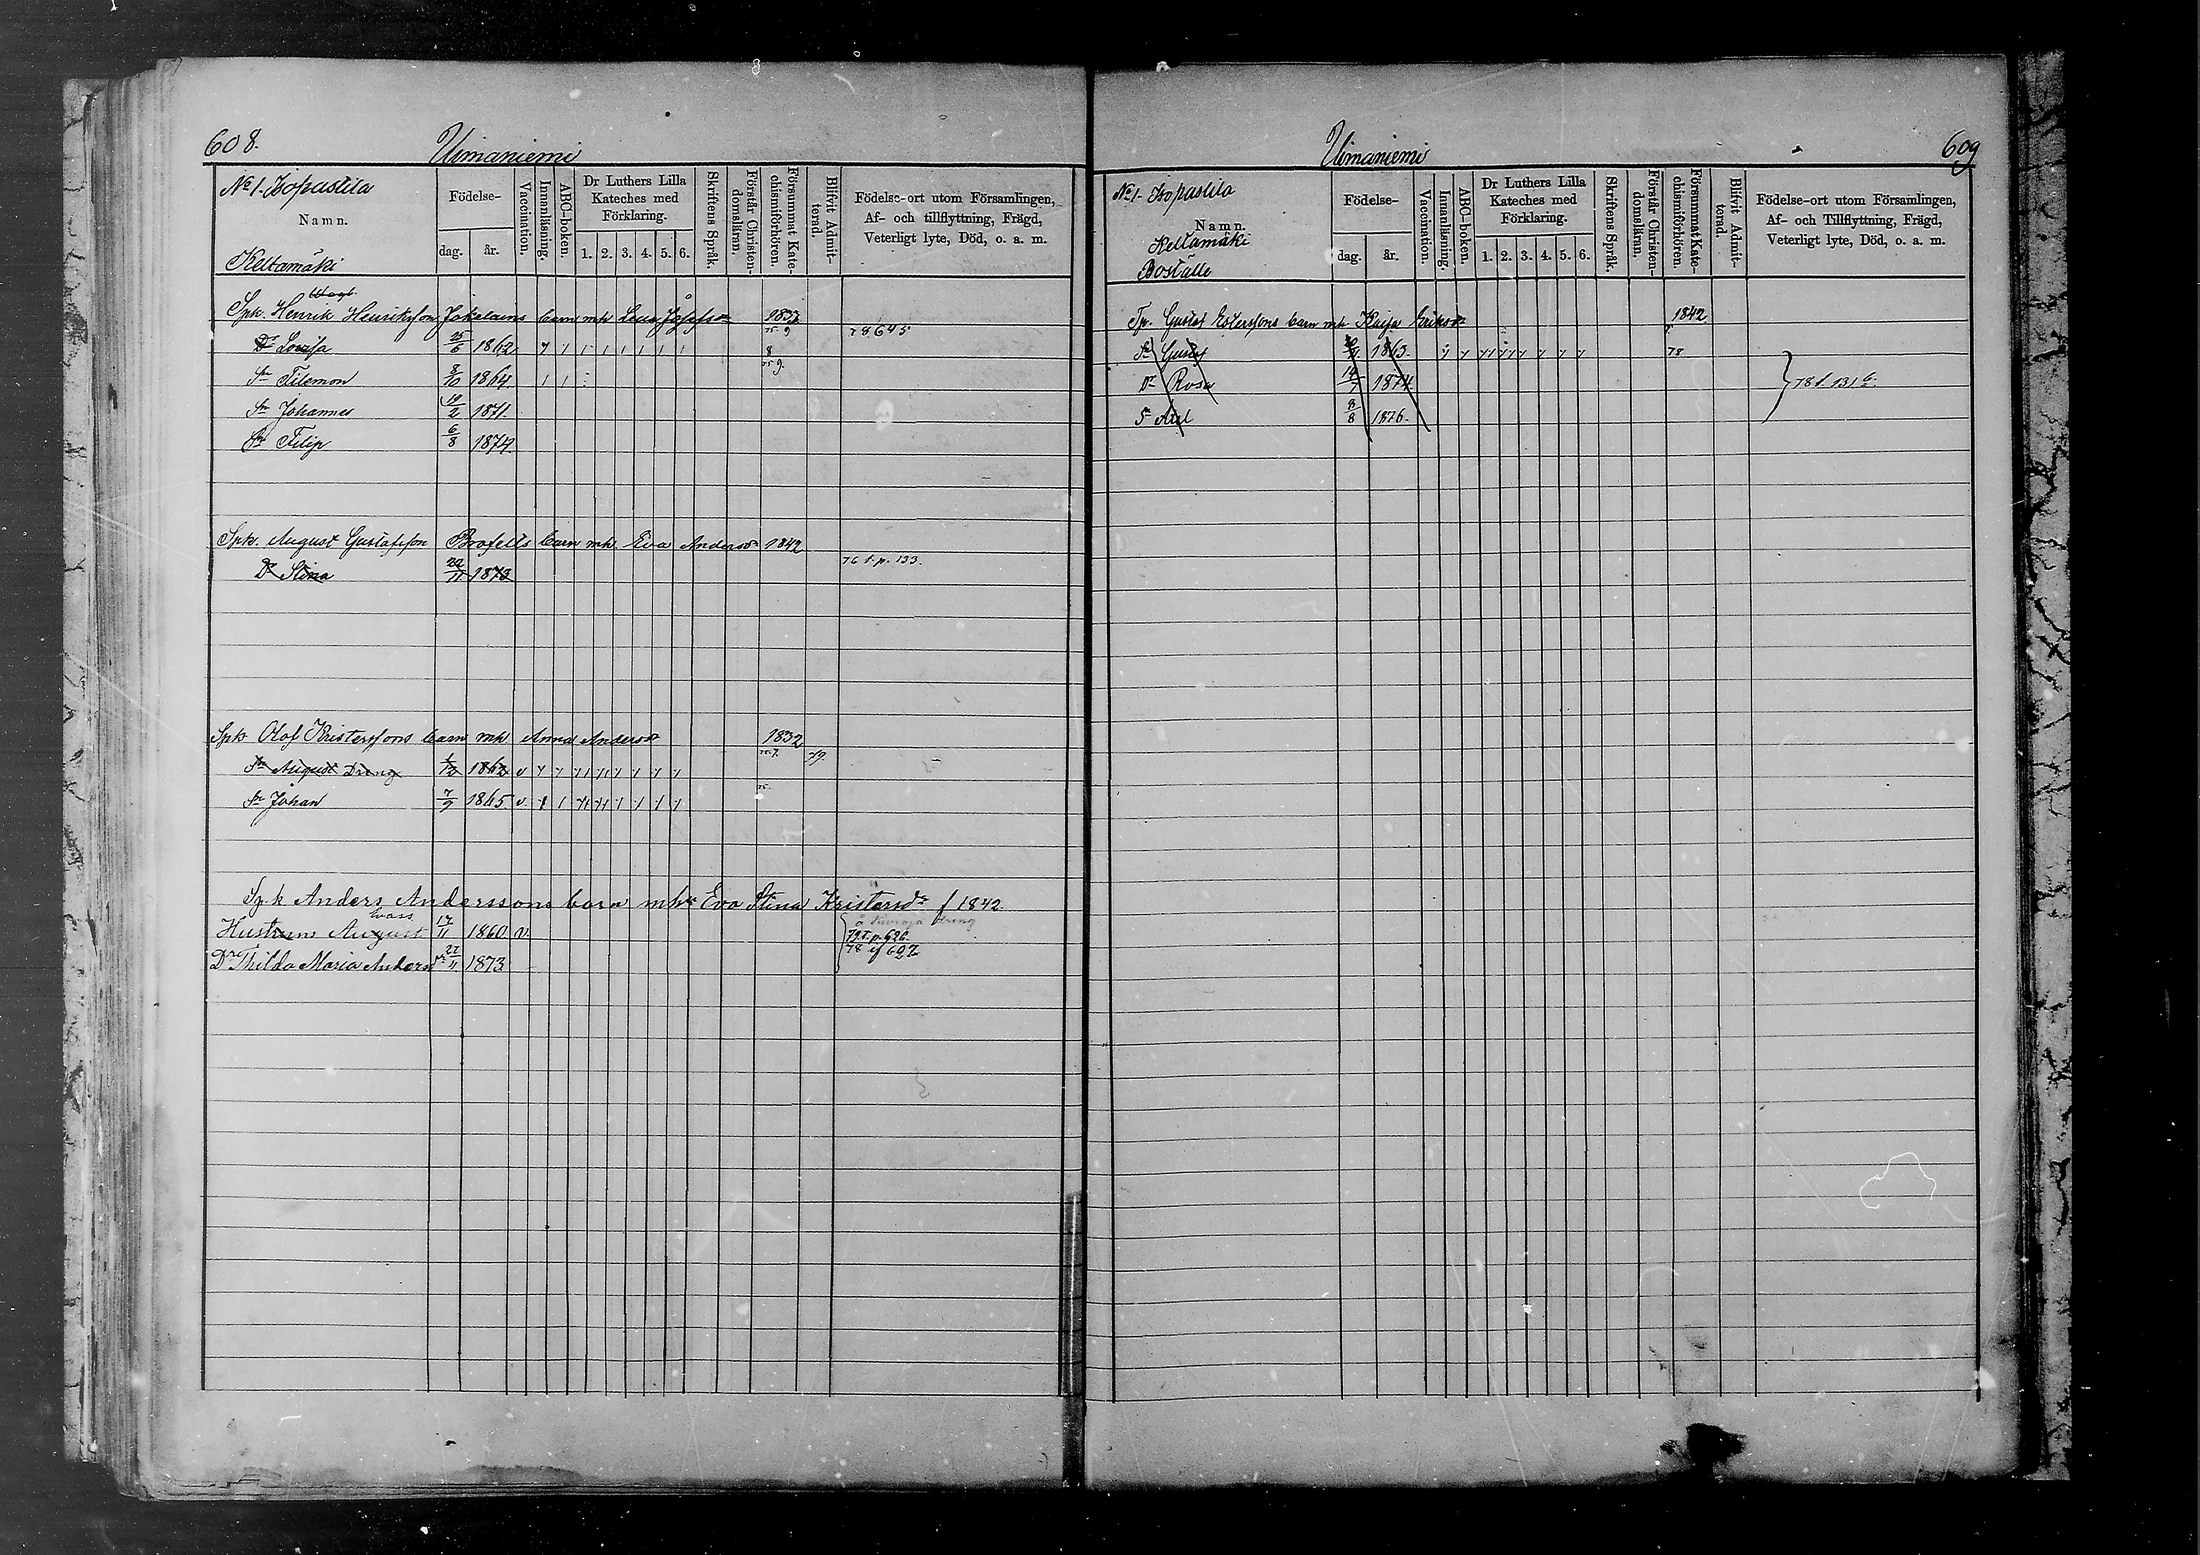 608.
Uimaniemi
No 1. Isopastila
Namn.
Keltamäki
Födelse-
dag.
år.
Vaccination.
Innanläsning.
ABC-boken.
Dr Luthers Lilla
Kateches med
Förklaring.
1. 2. 3. 4. 5. 6.
Skriftens Språk.
Förstår Christen-
domsläran.
Försummat Kate-
chismiförhören.
Blifvit Admit-
terad.
Födelse-ort utom Församlingen,
Af- och tillflyttning, Frägd,
Veterligt lyte, Död, o. a. m.
Spk. Henrik Henriksson Jokelains barn mh Lena Josefsdr 1837
Dr Lovisa 25/6 1862 78 645
Sn Filemon 8/10 1864
Sn Johannes 19/2 1871.
Sn Filip 6/8 1874.
Spk. August Gustafsson Brofelts barn mh. Eva Andersdr 1842
Dr Stina 22/11 1873 76 t. p. 133.
Spk. Olof Kristerssons barn mh Anna Andersdr 1832
Sn August Dreng 1862 v 79.
Sn Johan 7/9 1865 v 75.
Spk Anders Anderssons barn mhr Eva Stina Kristersdr f 1842.
Hustruns August 17/11 1860 v. 79 t. p. 626.
Dr Thilda Maria Andersdr 27/11 1873 78 f 627
609
Uimaniemi
No 1. Isopastila
Namn.
Keltamäki
Boställe
Födelse-
dag.
år.
Vaccination.
Innanläsning.
ABC-boken.
Dr Luthers Lilla
Kateches med
Förklaring.
1. 2. 3. 4. 5. 6.
Skriftens Språk.
Förstår Christen-
domsläran.
Försummat Kate-
chismiförhören.
Blifvit Admit-
terad.
Födelse-ort utom Församlingen,
Af- och Tillflyttning, Frägd,
Veterligt lyte, Död, o. a. m.
Tp. Gustaf Esterssons barn mh. Kaisa Eriksdr 1842
Sn Gustaf 1863. 78
Dr Rosa 1874 78 t. 131
Sn Axel 8/8 1876.